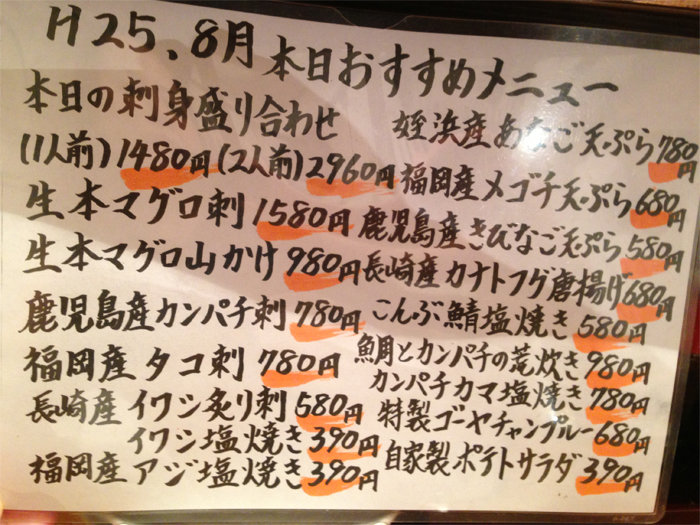 H25.8月 本日おすすめメニュー
本日の刺身盛り合わせ
(1人前)1480円(2人前)2960円
生本マグロ刺1580円
生本マグロ山かけ980円
鹿児島産カンパチ刺780円
福岡産タコ刺780円
長崎産イワシ炙り刺580円
イワシ塩焼き390円
福岡産アジ塩焼き390円
姪浜産あなご天ぷら780円
福岡産メゴチ天ぷら680円
鹿児島産きびなご天ぷら580円
長崎産カナトフグ唐揚げ680円
こんぶ鯖塩焼き580円
鯛とカンパチの荒炊き980円
カンパチカマ塩焼き780円
特製ゴーヤチャンプルー680円
自家製ポテトサラダ390円